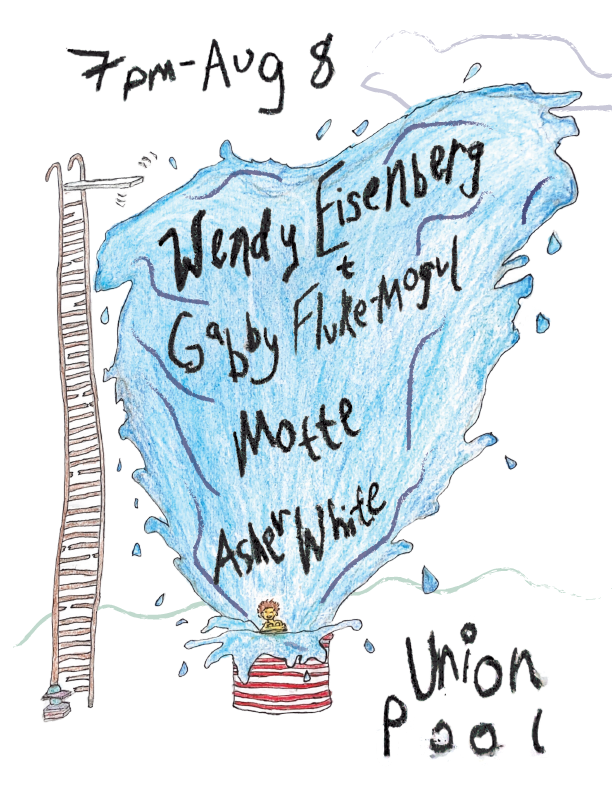 7pm-Aug 8
Wendy Eisenberg
+
Gabby Fluke-Mogul
Motte
Asher White
Union
Pool